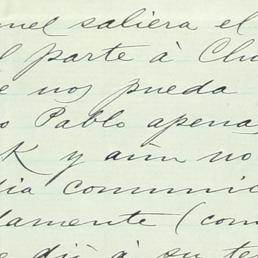 nel saliera el
l parte à Chi
e nos pueda
o Pablo apena
K y aun no
dia comunic
lamente (com
e dió à su te